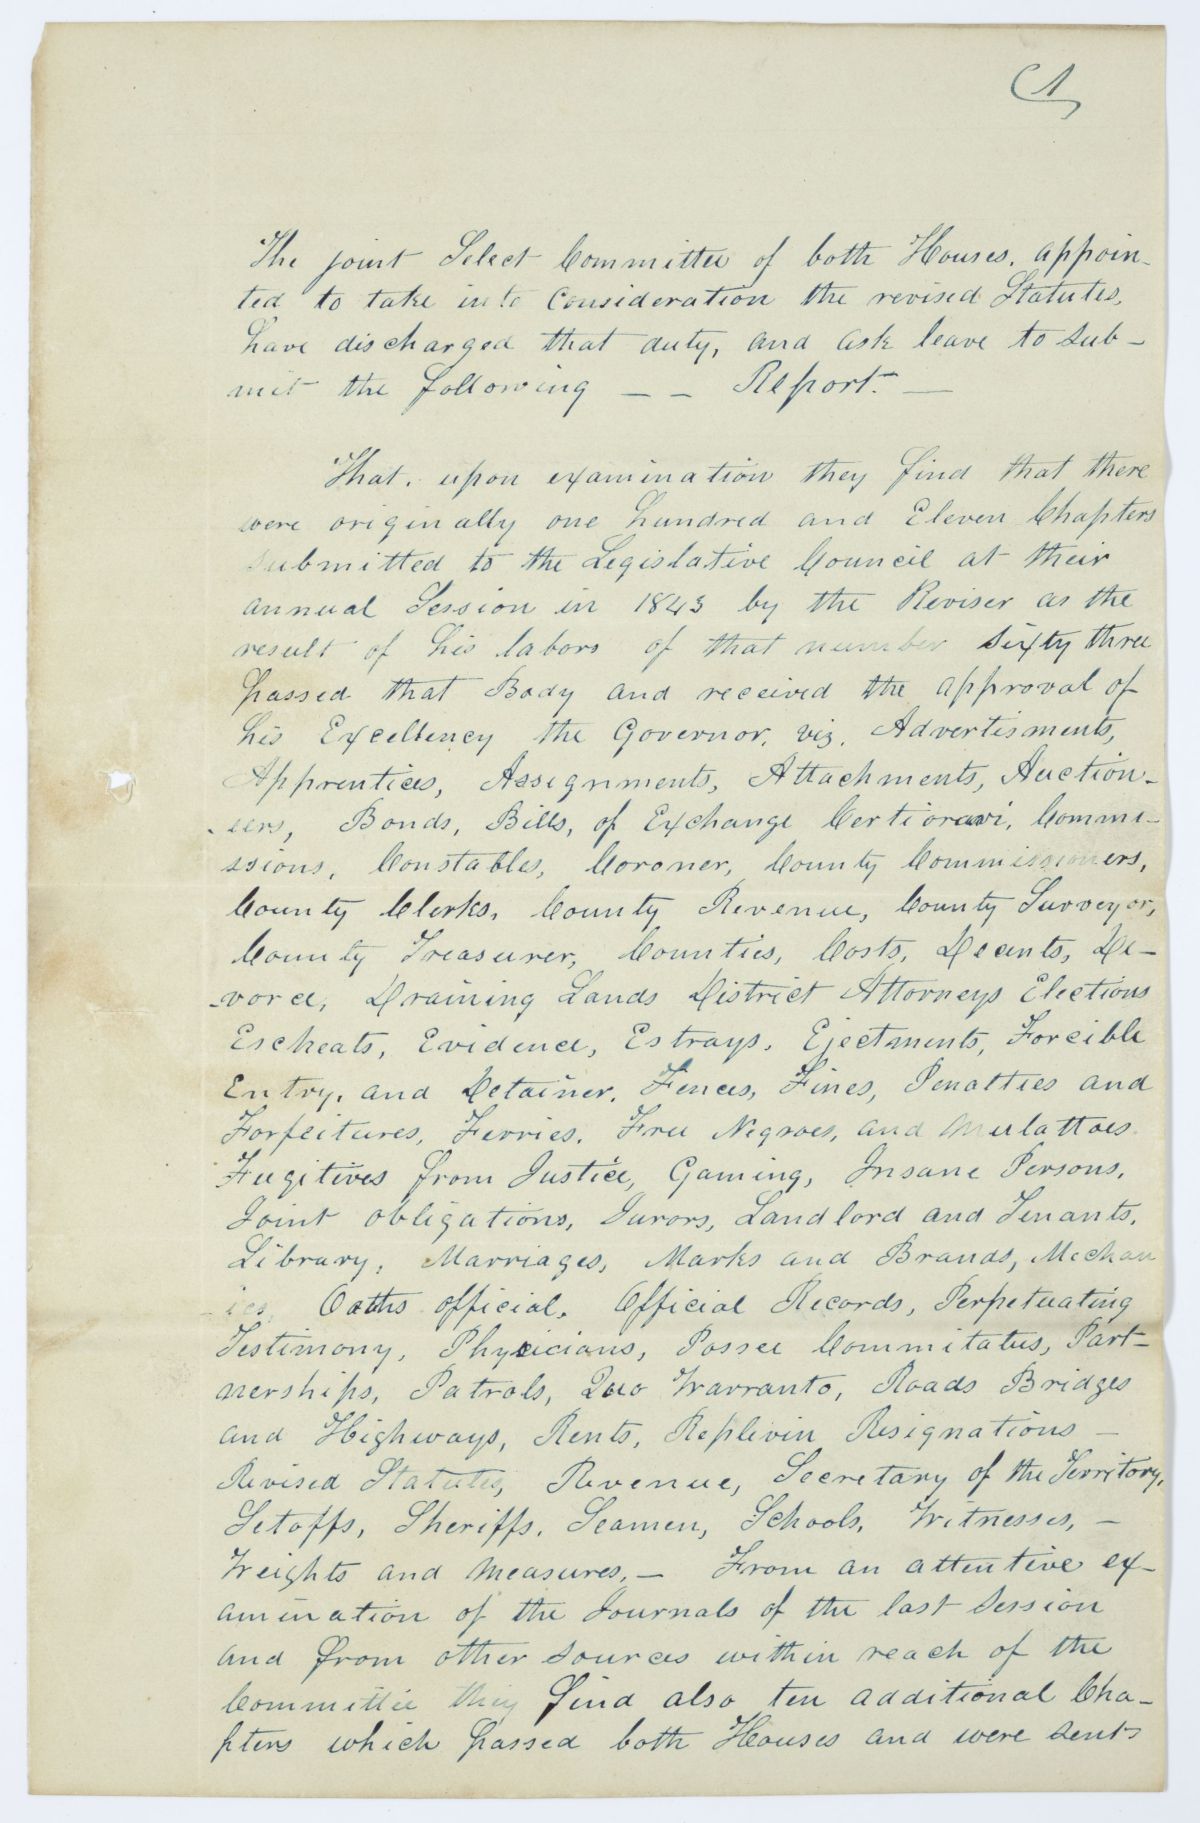 A
The joint Select Committee of both Houses. appoin-
ted to take into Consideration the revised Statutes,
have discharged that duty, and ask leave to Sub-
mit the following — — Report. —
That. upon examination they find that there
were originally one hundred and Eleven Chapters
submitted to the Legislative Council at their
annual Session in 1843 by the Reviser as the
result of his labors of that number Sixty three
passed that Body and received the approval of
his Excellency the Governor, viz. Advertisments,
Apprentices, Assignments, Attachments, Auction-
-eers, Bonds, Bills, of Exchange Certiorari, Commi-
ssions, Constables, Coroner, County Commissioners,
County Clerks, County Revenue, County Surveyor,
County Treasurer, Counties, Costs, Decents, Di-
-vorce, Draining Lands District Attorneys Elections
Escheats, Evidence, Estrays, Ejectments, Forcible
Entry, and Detainer, Fences, Fines, Penalties and
Forfeitures, Ferries, Free Negroes, and Mulattoes
Fugitives from Justice, Gaming, Insane Persons,
Joint obligations, Jurors, Landlord and Tenants,
Library, Marriages, Marks and Brands, Mechan
-ics, Oaths official, Official Records, Perpetuating
Testimony, Physicians, Possee Commitatus, Part-
nerships, Patrols, Quo Warranto, Roads Bridges
and Highways, Rents, Replivin Resignations —
Revised Statutes, Revenue, Secretary of the Territory,
Setoffs, Sheriffs, Seamen, Schools, Witnesses, —
Weights and Measures, — From an attentive ex-
amination of the Journals of the last Session
and from other sources within reach of the
Committee they find also ten additional Cha-
pters which passed both Houses and were sent